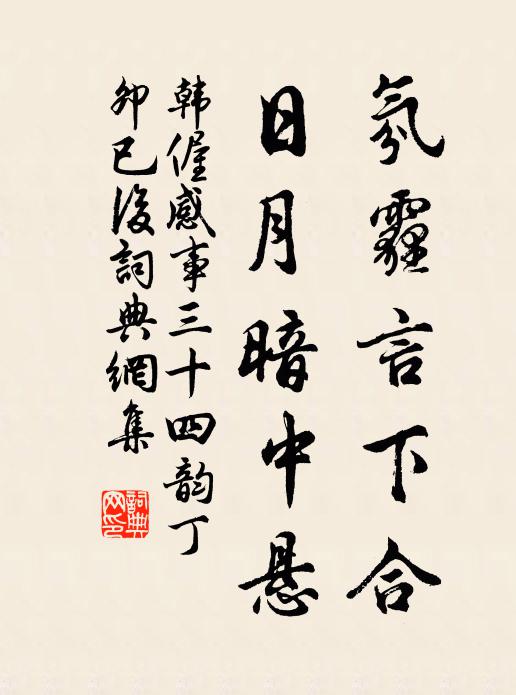 氛霾言下合
日月暗中悬
韩偓感事三十四韵丁
卯已後詞典網集
詞典网印